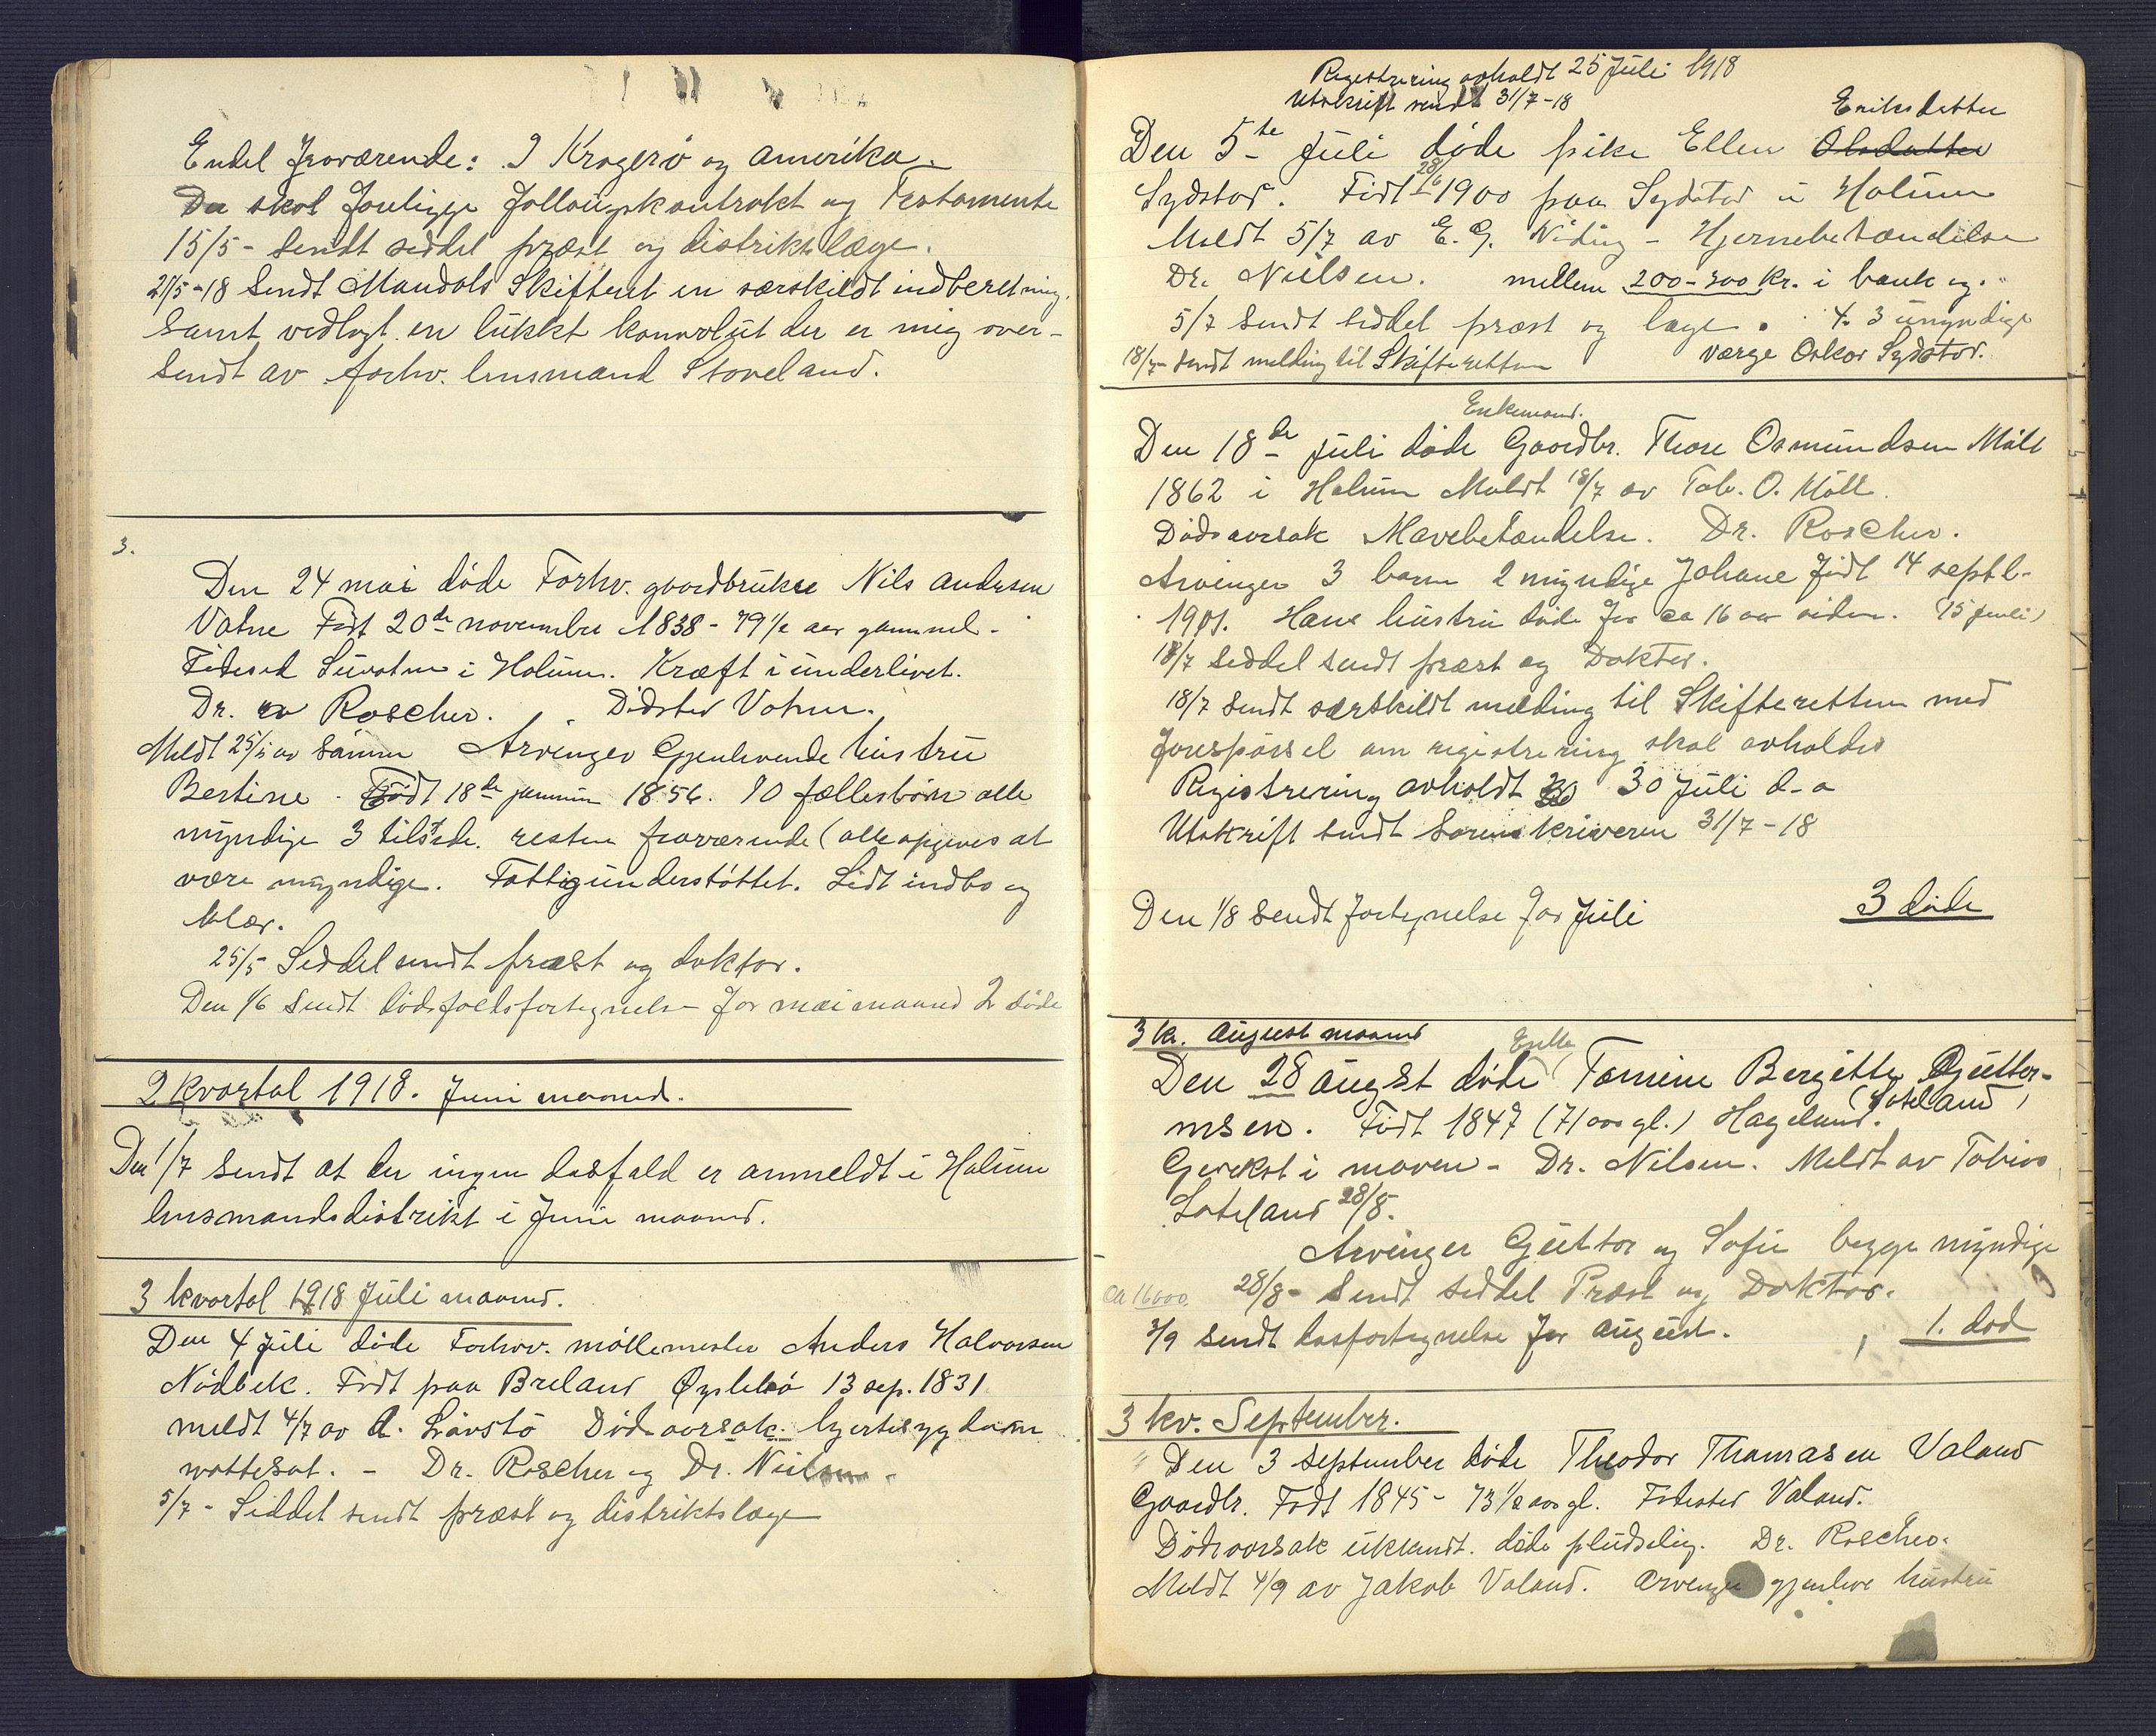 Endel fraværende: I Kragerø og amerika.
Der skal foreligge follougskontrakt og Testamente
15/5 - Sendt seddel præst og distriktslæge.
21/5-18 Sendt Mandals Skifteret en særskildt indberetning.
Samt vedlagt en lukkt konvolut der er mig over-
sendt av forhv. lensmand Stoveland.
3.
Den 24 mai døde Forhv. gaardbruker Nils Andersen
Vatne Født 20de november 1838 - 79 1/2 aar gammel.
Fødested i Holum. Kræft i underlivet.
Dr. av Roscher. Dødsted Vatne.
Meldt 25/5 av Sønnen Arvinger Gjenlevende hustru
Bertine. Født 18de januar 1856. 10 fællesbörn alle
myndige 3 tilstede. resten fraværende (alle opgives at
være myndige. Fattigunderstöttet. Lidt indbo og
klær.
25/5 Seddel sendt præst og doktor.
Den 1/6 Sendt dødsfaldsfortegnelse for mai maaned 2 døde
2 kvartal 1918. Juni maaned.
Den 1/7 sendt at der ingen dødsfald er anmeldt i Holum
lensmandsdistrikt i Juni maaned.
3 kvartal 1918 Juli maaned.
Den 4 juli døde Forhv. möllemester Anders Halvorsen
Nödbek. Født paa Breland Øyslebö 13 sep. 1831
meldt 4/7 av A. Dödsaarsak. hjertesygdom
wattesot. - Dr. Roscher og Dr. Nielsen.
5/7 - Seddel sendt præst og distriktslæge
Registrering avholdt 25 Juli 1918
Utskrift sendt 31/7-18
Eriksdatter
Den 5te Juli døde pike Ellen Olsdatter
Sydstad. Født 28/6 1900 paa Sydstad i Holum
Meldt 5/7 av E. G. - Hjernebetændelse
Dr. Nielsen. mellem 200-300 kr. i bank og.
5/7 Sendt seddel præst og læge. 3 umyndige
18/7 - sendt melding til Skifteretten værge Oskar Sydstad.
Enkemand.
Den 18de juli døde Gaardbr. Thore Osmundsen Möll
1862 i Holum Meldt 18/7 av Tob. O. Möll.
Dødsaarsak Mavebetændelse. Dr. Roscher.
Arvinger 3 barn 2 myndige Johane født 14 septb.
1901. Hans hustru döde for ca 16 aar siden. (15 juni)
18/7 Seddel sendt præst og Doktor.
18/7 Sendt særskildt melding til Skifteretten med
forespörsel om registrering skal avholdes
Registrering avholdt 30 Juli d.a
Utskrift sendt Sorenskriveren 31/7-18
Den 1/8 Sendt fortegnelse for Juli 3 døde
3 kv. August maaned
Enke
Den 28 august døde Tomine Bergitte Gutter-
msen. Født 1847 (71 aar gl.) Hageland. (Loteland)
i maven - Dr. Nilsen. Meldt av Tobias
Loteland 28/8.
Arvinger Guttor og Sofie begge myndige
28/8 - Sendt seddel Præst og Doktor.
ca 16000
2/9 sendt dødsfortegnelse for august. 1. död
3 kv. September.
Den 3 September døde Theodor Thomasen Valand
Gaardbr. Født 1845 - 73 1/2 aar gl. Fødested Valand.
Dødsaarsak ukkendt. døde pludselig. Dr. Roscher.
Meldt 4/9 av Jakob Valand. Arvinger gjenleve hustru